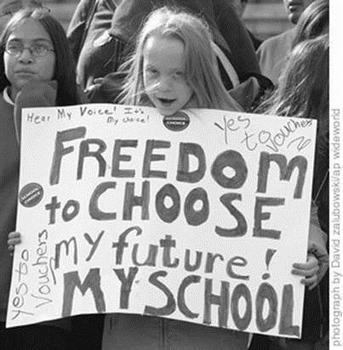 Hear My Voice! It's
My choice!
Yes to
Vouchers
FREEDOM
to CHOOSE
my future!
MY SCHOOL
Yes to
Vouchers
photograph by David zalubowski/ap wideworld